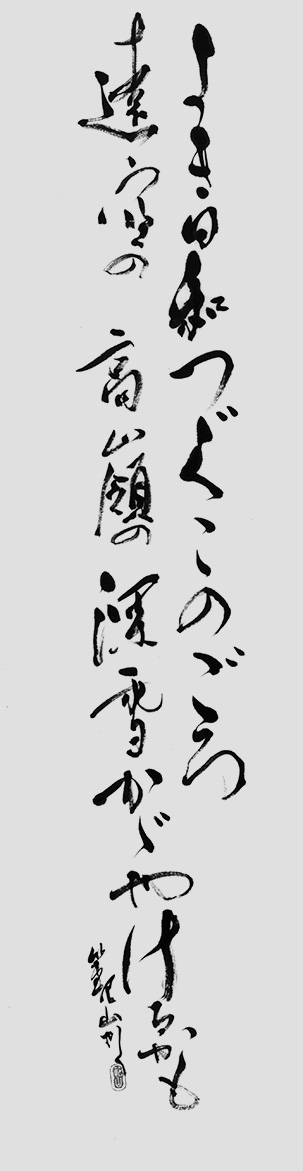 よき日和つづくこのごろ
遠空の高山嶺の深雪かゞやけるかも